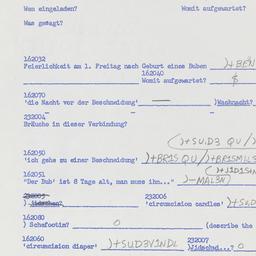 Wen eingeladen? Womit aufgewartet?
Was gesagt?
162032
Feierlichkeit am 1. Freitag nach Geburt eines Buben )+BEN
162040
Womit aufgewartet? $
162070
'die Nacht vor der Beschneidung' — )Wachnacht?
232004
Bräuche in dieser Verbindung?
()+SU.D3 QU/
162050
'ich gehe zu einer Beschneidung' )+BR1S QU/)+BR1SM1L
162051
"Der Bub' ist 8 Tage alt, man muss ihn..." )-MAL3N)
232003 232006
) Jidischen? 'circumcision candles' )+SU.D
162080
) Schafootim? 0 (describe the
162060 232007
'circumcision diaper' )+SUD3V1NDL )Jidschud...? 0